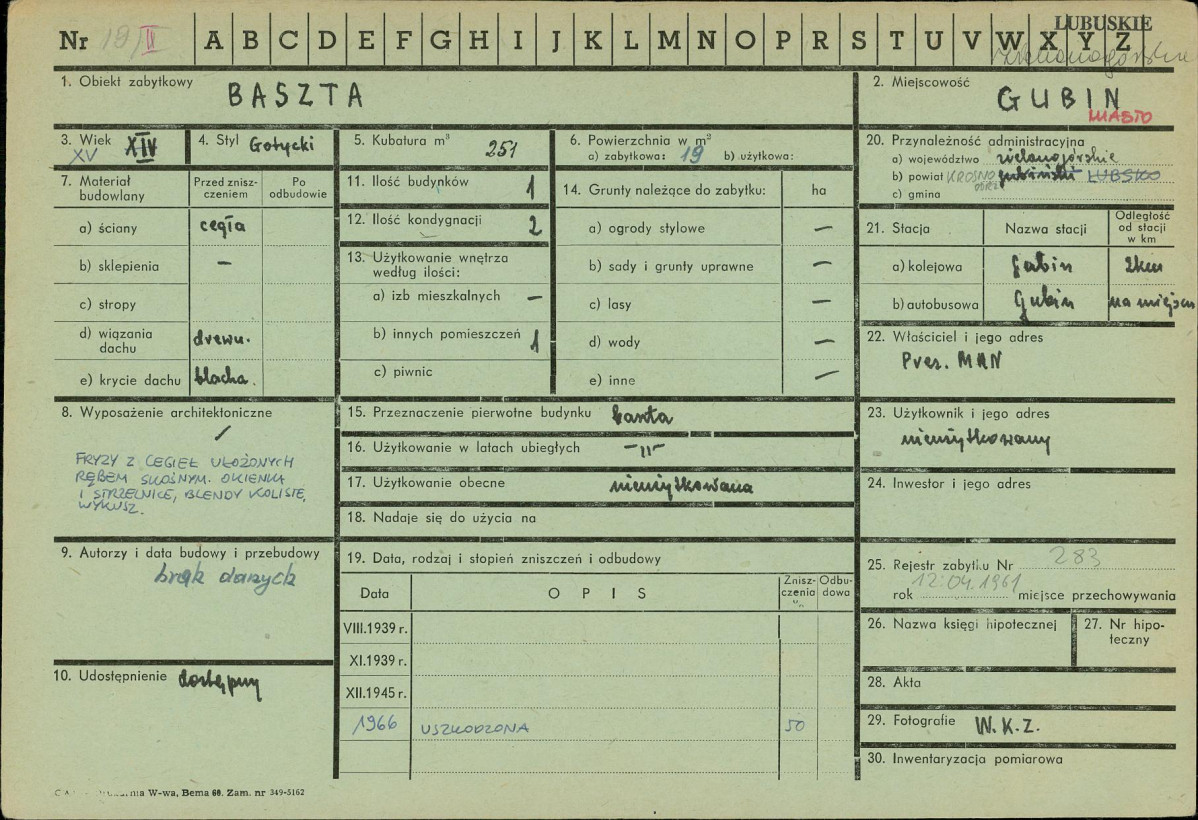 LUBUSKIE
Nr 19/II A B C D E F G H I J K L M N O P R S T U V W X Y Z
zielonogórskie
1. Obiekt zabytkowy
BASZTA
2. Miejscowość
GUBIN
MIASTO
3. Wiek XIV
XV
4. Styl Gotycki
5. Kubatura m³ 251
6. Powierzchnia w m²
a) zabytkowa: 19 b) użytkowa:
7. Materiał budowlany
Przed znisz-
czeniem
Po
odbudowie
a) ściany cegła
b) sklepienia –
c) stropy
d) wiązania
dachu drewn.
e) krycie dachu blacha.
8. Wyposażenie architektoniczne
/
FRYZY Z CEGIEŁ UŁOŻONYCH
RĘBEM SKOŚNYM. OKIENKA
I STRZELNICE, BLENDY KOLISTE,
WYKUSZ.
9. Autorzy i data budowy i przebudowy
brak danych
10. Udostępnienie dostępny
11. Ilość budynków 1
12. Ilość kondygnacji 2
13. Użytkowanie wnętrza
według ilości:
a) izb mieszkalnych –
b) innych pomieszczeń 1
c) piwnic
14. Grunty należące do zabytku: ha
a) ogrody stylowe –
b) sady i grunty uprawne –
c) lasy –
d) wody –
e) inne –
15. Przeznaczenie pierwotne budynku baszta
16. Użytkowanie w latach ubiegłych –"–
17. Użytkowanie obecne nieużytkowana
18. Nadaje się do użycia na
19. Data, rodzaj i stopień zniszczeń i odbudowy
Data O P I S Znisz-
czenia
%
Odbu-
dowa
VIII.1939 r.
XI.1939 r.
XII.1945 r.
1966 USZKODZONA 50
20. Przynależność administracyjna
a) województwo zielonogórskie
b) powiat KROSNO ODRZ. gubiński LUBSKO
c) gmina
21. Stacja Nazwa stacji Odległość
od stacji
w km
a) kolejowa Gubin 2km
b) autobusowa Gubin na miejscu
22. Właściciel i jego adres
Prez. MRN
23. Użytkownik i jego adres
nieużytkowany
24. Inwestor i jego adres
25. Rejestr zabytku Nr 283
rok 12.04.1961 miejsce przechowywania
26. Nazwa księgi hipotecznej
27. Nr hipo-
teczny
28. Akta
29. Fotografie W.K.Z.
30. Inwentaryzacja pomiarowa
W-wa, Bema 60. Zam. nr 349-5162